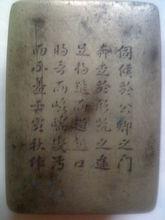 伺候於公卿之门
奔走於形勢之途
足將進而趑趄口
將言而囁嚅處汚
而不羞
秋作